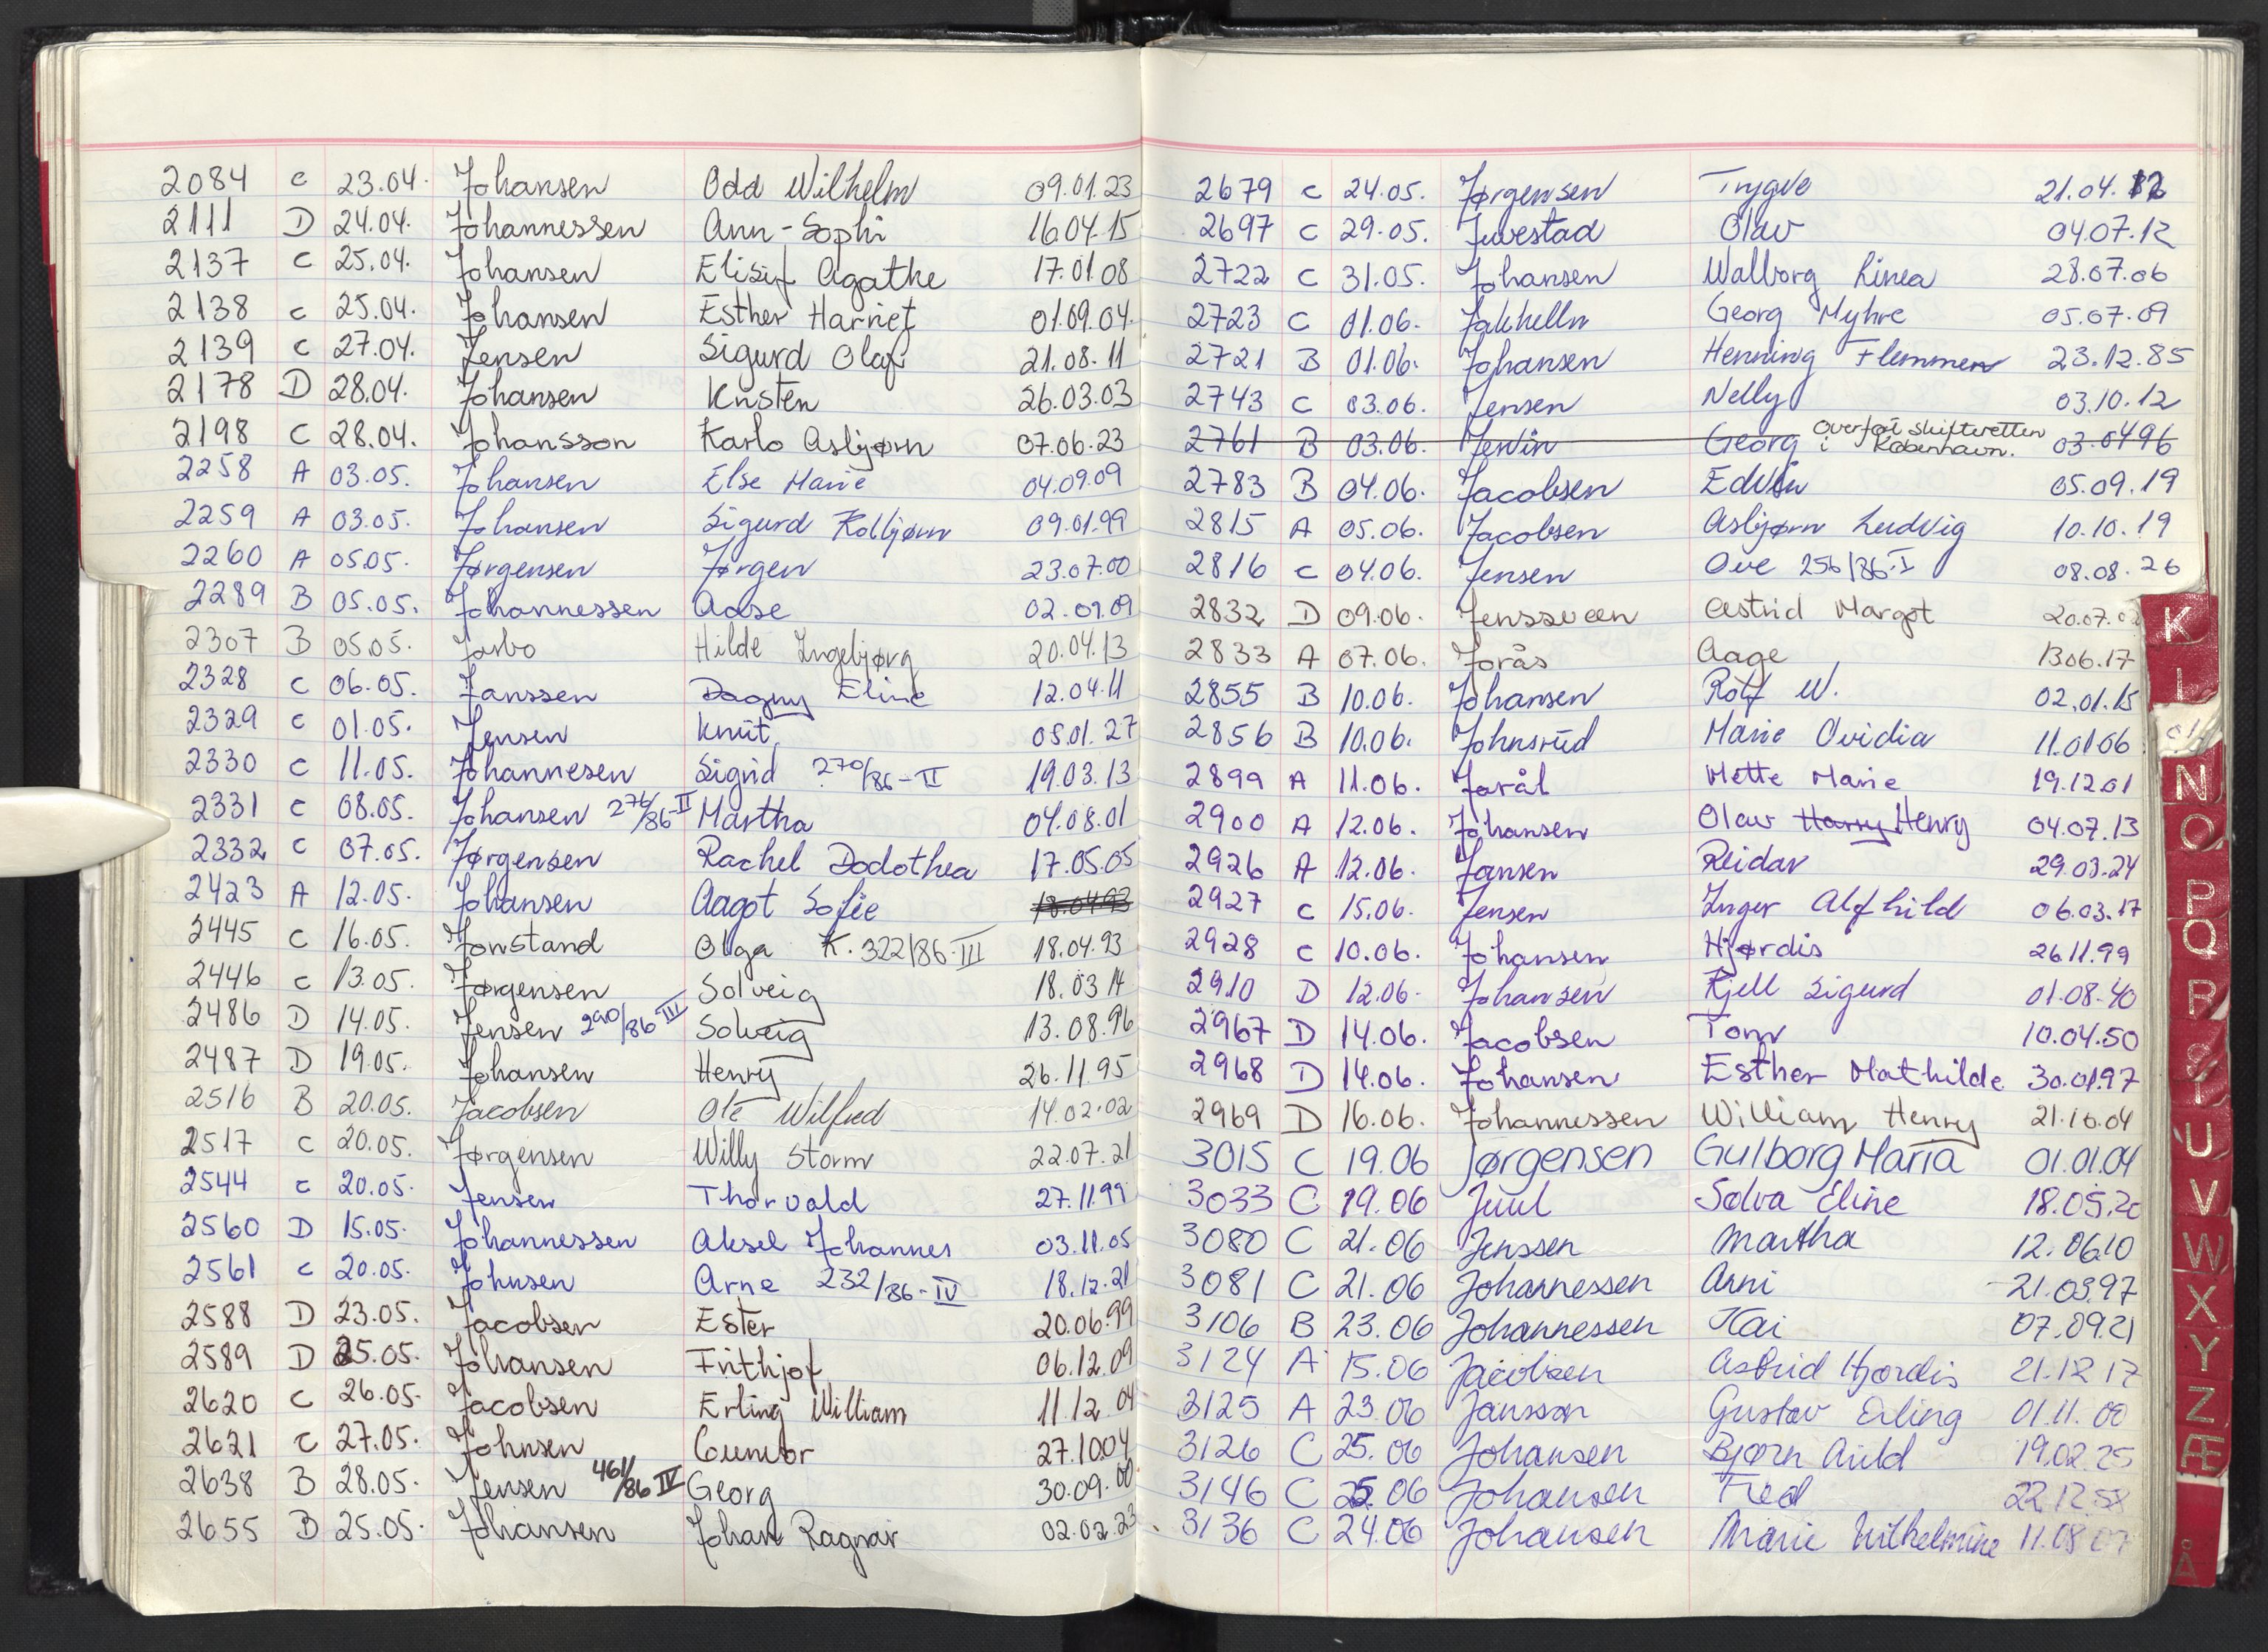 2084 c 23.04. Johansen Odd Wilhelm 09.01.23
2111 D 24.04. Johannessen Ann-Sophi 16.04.15
2137 c 25.04. Johansen Elisif Agathe 17.01.08
2138 c 25.04. Johansen Esther Harriet 01.09.04.
2139 c 27.04. Jensen Sigurd Olaf 21.08.11
2178 D 28.04. Johansen Kristen 26.03.03
2198 C 28.04. Johansson Karlo Asbjørn 07.06.23
2258 A 03.05. Johansen Else Marie 04.09.09
2259 A 03.05. Johansen Sigurd Kolbjørn 09.01.99
2260 A 05.05. Jørgensen Jørgen 23.07.00
2289 B 05.05. Johannessen Aase 02.09.09
2307 B 05.05. Jarbo Hilde Ingebjørg 20.04.13
2328 c 06.05. Janssen Dagny Eline 12.04.11
2329 c 01.05. Jensen Knut 05.01.27
2330 c 11.05. Johannesen Sigrid 270/86-II 19.03.13
2331 c 08.05. Johansen 276/86-II Martha 04.08.01
2332 c 07.05. Jørgensen Rachel Dodothea 17.05.05
2423 A 12.05. Johansen Aagot Sofie 18.04.93
2445 c 16.05. Jonstand Olga K. 322/86-III 18.04.93
2446 c 13.05. Jørgensen Solveig 18.03 14
2486 D 14.05. Jensen 290/86 III Solveig 13.08.96
2487 D 19.05. Johansen Henry 26.11.95
2516 B 20.05. Jacobsen Ole Wilfred 14.02.02
2517 c 20.05. Jørgensen Willy Storm 22.07.21
2544 c 20.05. Jensen Thorvald 27.11.99
2560 D 15.05. Johannessen Aksel Johannes 03.11.05
2561 c 20.05. Johnsen Arne 232/86-IV 18.12.21
2588 D 23.05. Jacobsen Ester 20.06.99
2589 D 25.05. Johansen Frithjof 06.12.09
2620 C 26.05. Jacobsen Erling William 11.12.04
2621 c 27.05. Johnsen Gunvor 27.10.04
2638 B 28.05. Jensen 461/86 IV Georg 30.09.00
2655 B 25.05. Johansen Johan Ragnar 02.02.23
2679 c 24.05. Jørgensen Trygve 21.04.12
2697 C 29.05. Juvestad Olav 04.07.12
2722 C 31.05. Johansen Walborg Linea 28.07.06
2723 C 01.06. Jakhelln Georg Myhre 05.07.09
2721 B 01.06. Johansen Henning Flemmen 23.12.85
2743 C 03.06. Jensen Nelly 03.10.12
2761 B 03.06. Jervin Georg Overført skifteretten i København. 03.04.96
2783 B 04.06. Jacobsen Edvin 05.09.19
2815 A 05.06. Jacobsen Asbjørn Ludvig 10.10.19
2816 c 04.06. Jensen Ove 256/86-I 08.08.26
2832 D 09.06. Jenssveen Astrid Margot 20.07.
2833 A 07.06. Jorås Aage 13.06.17
2855 B 10.06. Johansen Rolf W. 02.01.15
2856 B 10.06. Johnsrud Marie Ovidia 11.01.06
2899 A 11.06. Jaråt Mette Marie 19.12.01
2900 A 12.06. Johansen Olav Harry Henry 04.07.13
2926 A 12.06. Jansen Reidar 29.03.24
2927 c 15.06. Jensen Inger Alfhild 06.03.17
2928 c 10.06. Johansen Hjørdis 26.11.99
2910 D 12.06. Johansen Kjell Sigurd 01.08.40
2967 D 14.06. Jacobsen Tom 10.04.50
2968 D 14.06. Johansen Esther Mathilde 30.01.97
2969 D 16.06. Johannessen William Henry 21.10.04
3015 C 19.06 Jørgensen Gulborg Maria 01.01.04
3033 C 19.06 Juul Solva Eline 18.05.20
3080 C 21.06 Jenssen Martha 12.06.10
3081 C 21.06 Johannessen Arni 21.03.97
3106 B 23.06 Johannessen Kai 07.09.21
3124 A 15.06 Jacobsen Astrid Hjørdis 21.12 17
3125 A 23.06 Jansson Gustav Erling 01.11.00
3126 C 25.06 Johansen Bjørn Auld 19.02.25
3146 C 25.06 Johansen Fred 22.12.58
3136 C 24.06 Johansen Marie Wilhelmine 11.08.07
K
L
N
O
P
Q
R
S
T
U
V
W
X
Y
Z
Æ
Å